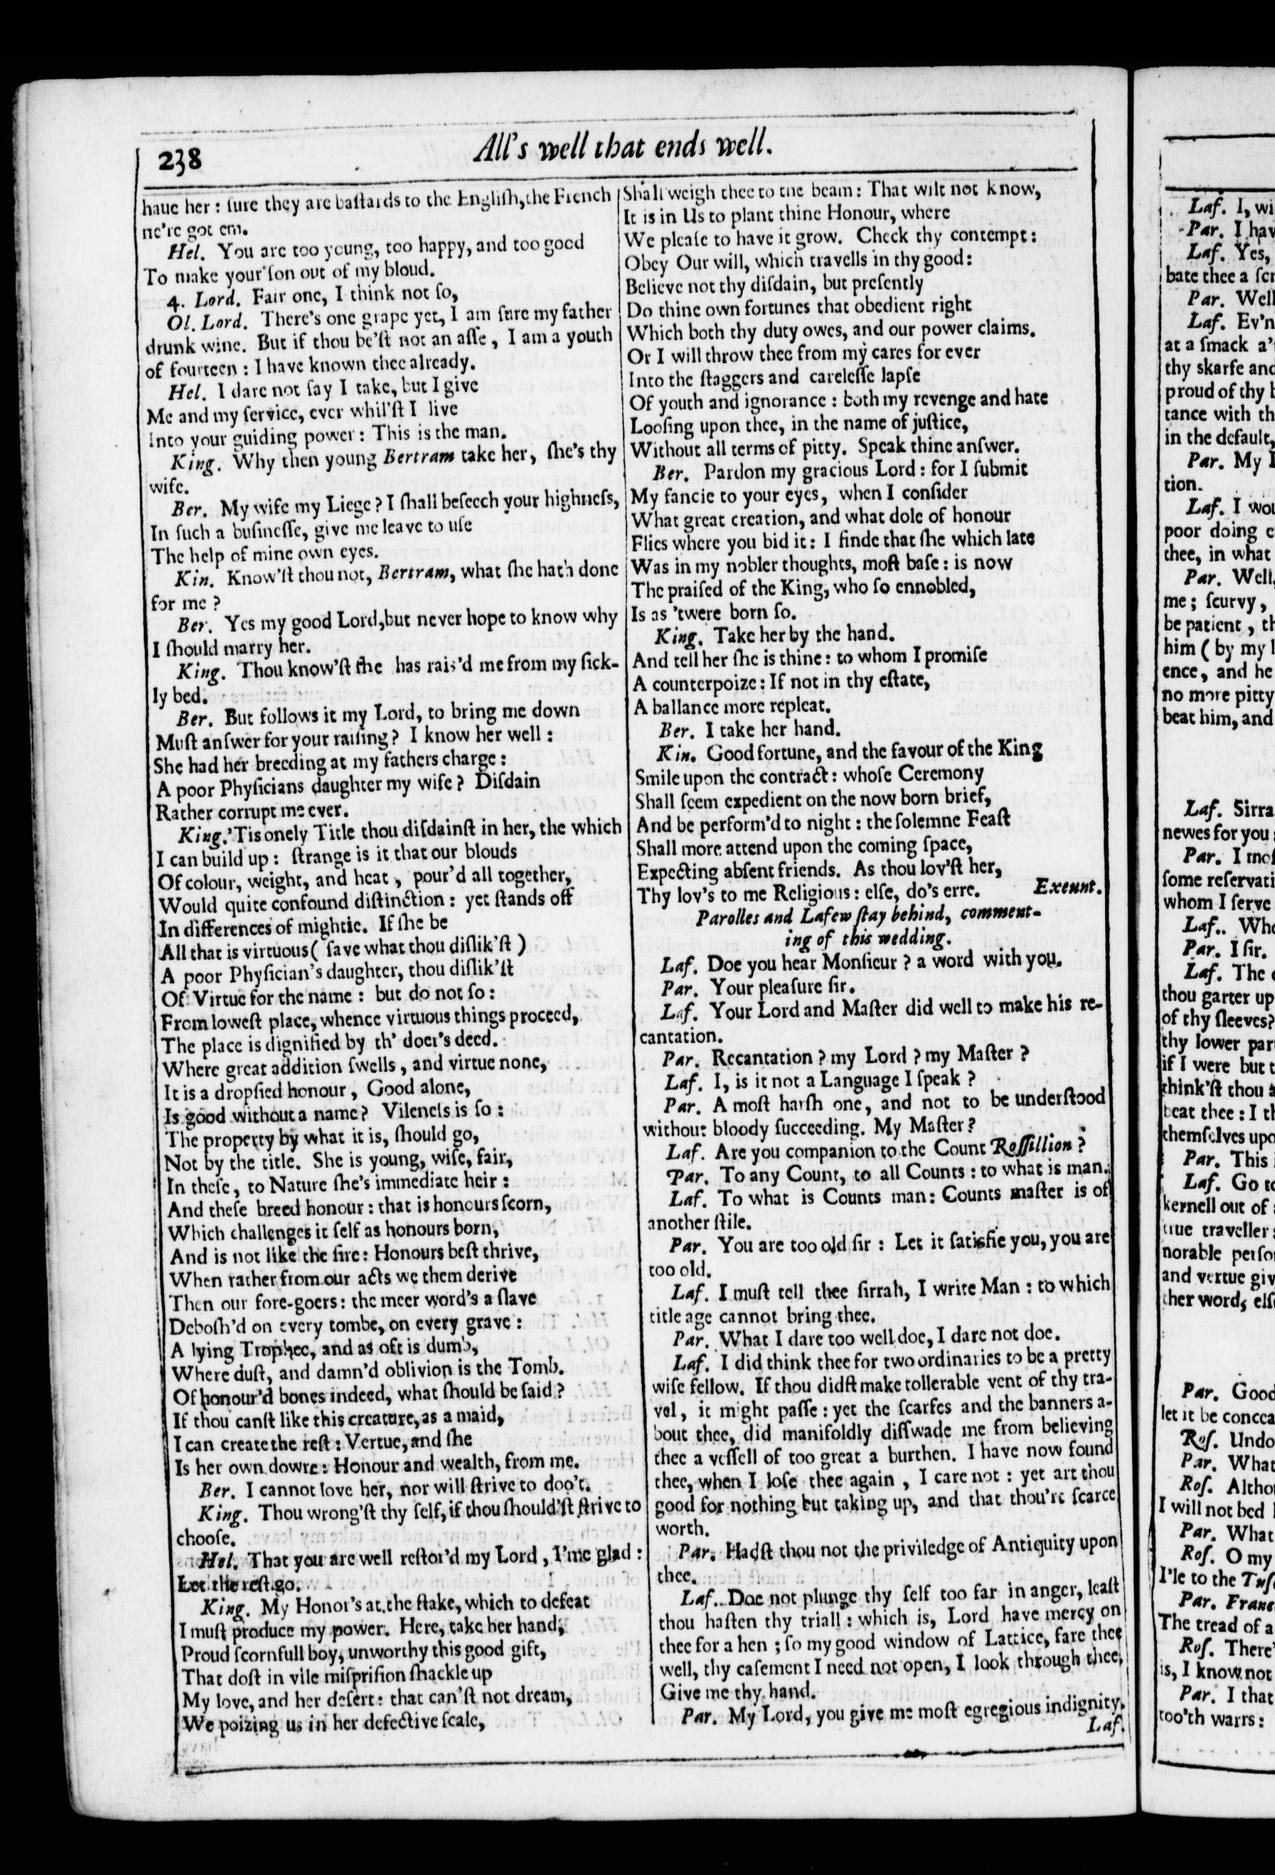 238
All's well that ends well.
haue her: ſure they are baſtards to the Engliſh, the French
ne're got em.
Hel. You are too young, too happy, and too good
To make your ſon out of my bloud.
4. Lord. Fair one, I think not ſo,
Ol. Lord. There's one grape yet, I am ſure my father
drunk wine. But if thou be'ſt not an aſſe, I am a youth
of fourteen: I have known thee already.
Hel. I dare not ſay I take, but I give
Me and my ſervice, ever whil'ſt I live
Into your guiding power: This is the man.
King. Why then young Bertram take her, ſhe's thy
wife.
Ber. My wife my Liege? I ſhall beſeech your highneſs,
In ſuch a buſineſſe, give me leave to uſe
The help of mine own eyes.
Kin. Know'ſt thou not, Bertram, what ſhe hath done
for me?
Ber. Yes my good Lord, but never hope to know why
I ſhould marry her.
King. Thou know'ſt ſhe has rais'd me from my ſick-
ly bed.
Ber. But follows it my Lord, to bring me down
Muſt anſwer for your raiſing? I know her well:
She had her breeding at my fathers charge:
A poor Phyſicians daughter my wife? Diſdain
Rather corrupt me ever.
King. 'Tis onely Title thou diſdainſt in her, the which
I can build up: ſtrange is it that our blouds
Of colour, weight, and heat, pour'd all together,
Would quite confound diſtinction: yet ſtands off
In differences of mightie. If ſhe be
All that is virtuous (ſave what thou diſlik'ſt)
A poor Phyſician's daughter, thou diſlik'ſt
Of Virtue for the name: but do not ſo:
From loweſt place, whence virtuous things proceed,
The place is dignified by th' doer's deed.
Where great addition ſwells, and virtue none,
It is a dropſied honour, Good alone,
Is good without a name? Vileneſs is ſo:
The property by what it is, ſhould go,
Not by the title. She is young, wiſe, fair,
In theſe, to Nature ſhe's immediate heir:
And theſe breed honour: that is honours ſcorn,
Which challenges it ſelf as honours born,
And is not like the ſire: Honours beſt thrive,
When rather from our acts we them derive
Then our fore-goers: the meer word's a ſlave
Deboſh'd on every tombe, on every grave:
A lying Trophee, and as oft is dumb,
Where duſt, and damn'd oblivion is the Tomb.
Of honour'd bones indeed, what ſhould be ſaid?
If thou canſt like this creature, as a maid,
I can create the reſt: Vertue, and ſhe
Is her own dowre: Honour and wealth, from me.
Ber. I cannot love her, nor will ſtrive to doo't.
King. Thou wrong'ſt thy ſelf, if thou ſhould'ſt ſtrive to
chooſe.
Hel. That you are well reſtor'd my Lord, I'me glad:
Let the reſt go.
King. My Honor's at the ſtake, which to defeat
I muſt produce my power. Here, take her hand,
Proud ſcornfull boy, unworthy this good gift,
That doſt in vile miſpriſion ſhackle up
My love, and her deſert: that can'ſt not dream,
We poizing us in her defective ſcale,
Shall weigh thee to the beam: That wilt not know,
It is in Us to plant thine Honour, where
We pleaſe to have it grow. Check thy contempt:
Obey Our will, which travells in thy good:
Believe not thy diſdain, but preſently
Do thine own fortunes that obedient right
Which both thy duty owes, and our power claims.
Or I will throw thee from my cares for ever
Into the ſtaggers and careleſſe lapſe
Of youth and ignorance: both my revenge and hate
Looſing upon thee, in the name of juſtice,
Without all terms of pitty. Speak thine anſwer.
Ber. Pardon my gracious Lord: for I ſubmit
My fancie to your eyes, when I conſider
What great creation, and what dole of honour
Flies where you bid it: I finde that ſhe which late
Was in my nobler thoughts, moſt baſe: is now
The praiſed of the King, who ſo ennobled,
Is as 'twere born ſo.
King. Take her by the hand.
And tell her ſhe is thine: to whom I promiſe
A counterpoize: If not in thy eſtate,
A ballance more repleat.
Ber. I take her hand.
Kin. Good fortune, and the favour of the King
Smile upon the contract: whoſe Ceremony
Shall ſeem expedient on the now born brief,
And be perform'd to night: the ſolemne Feaſt
Shall more attend upon the coming ſpace,
Expecting abſent friends. As thou lov'ſt her,
Thy lov's to me Religious: elſe, do's erre. Exeunt.
Parolles and Lafew ſtay behind, comment-
ing of this wedding.
Laf. Doe you hear Monſieur? a word with you.
Par. Your pleaſure ſir.
Laf. Your Lord and Maſter did well to make his re-
cantation.
Par. Recantation? my Lord? my Maſter?
Laf. I, is it not a Language I ſpeak?
Par. A moſt harſh one, and not to be underſtood
without bloody ſucceeding. My Maſter?
Laf. Are you companion to the Count Roſſillion?
Par. To any Count, to all Counts: to what is man.
Laf. To what is Counts man: Counts maſter is of
another ſtile.
Par. You are too old ſir: Let it ſatisfie you, you are
too old.
Laf. I muſt tell thee ſirrah, I write Man: to which
title age cannot bring thee.
Par. What I dare too well doe, I dare not doe.
Laf. I did think thee for two ordinaries to be a pretty
wiſe fellow. If thou didſt make tollerable vent of thy tra-
vel, it might paſſe: yet the ſcarfes and the banners a-
bout thee, did manifoldly diſſwade me from believing
thee a veſſell of too great a burthen. I have now found
thee, when I loſe thee again, I care not: yet art thou
good for nothing but taking up, and that thou'rt ſcarce
worth.
Par. Hadſt thou not the priviledge of Antiquity upon
thee.
Laf. Doe not plunge thy ſelf too far in anger, leaſt
thou haſten thy triall: which is, Lord have mercy on
thee for a hen; ſo my good window of Lattice, fare thee
well, thy caſement I need not open, I look through thee.
Give me thy hand.
Par. My Lord, you give me moſt egregious indignity.
Laf.
Laf. I, wi
Par. I hav
Laf. Yes,
bate thee a ſcr
Par. Well
Laf. Ev'n
at a ſmack a'
thy skarfe and
proud of thy b
tance with th
in the default,
Par. My
tion.
Laf. I wou
poor doing e
thee, in what
Par. Well,
me; ſcurvy,
be patient, th
him (by my l
ence, and he
no more pitty
beat him, and
Laf. Sirra
newes for you
Par. I moſ
ſome reſervati
whom I ſerve
Laf. Who
Par. I ſir.
Laf. The
thou garter up
of thy ſleeves?
thy lower par
if I were but t
think'ſt thou a
beat thee: I th
themſelves upo
Par. This
Laf. Go to
kernell out of
true traveller:
norable perſo
and vertue giv
ther word, elſe
Par. Good
let it be concea
Roſ. Undo
Par. What
Roſ. Altho
I will not bed
Par. What
Roſ. O my
I'le to the Tuſc
Par. France
The tread of a
Roſ. There'
is, I know not
Par. I that
too'th warrs: